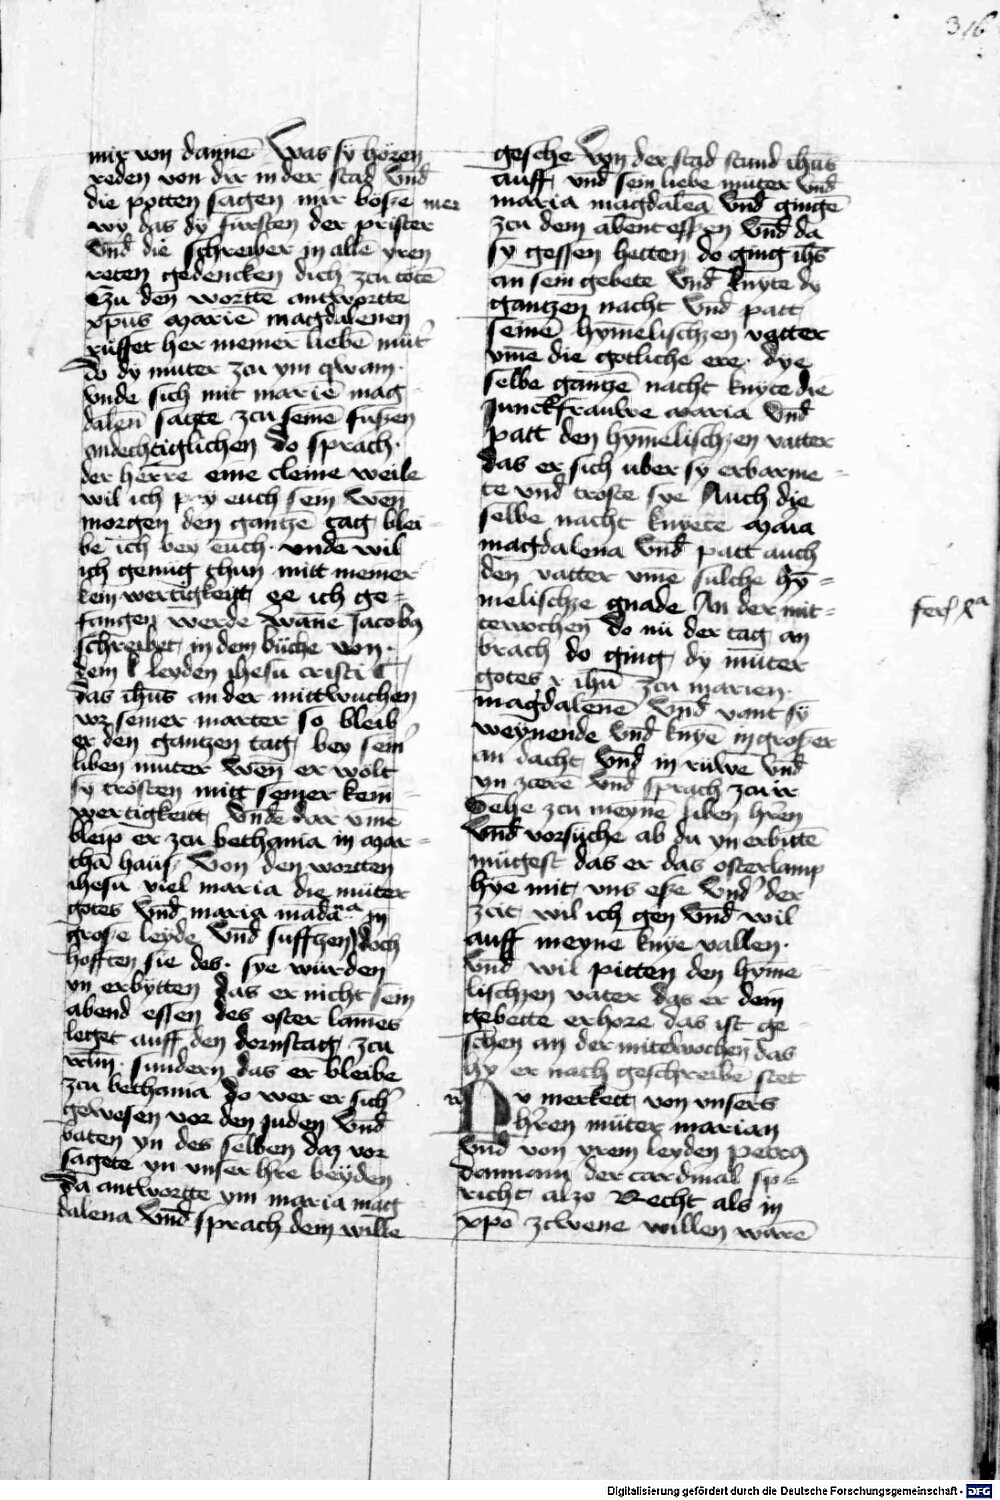 316
mir von dannē Was sÿ hören
reden von dir in der stad vnd̄
die potten sagen mir bosze mer
wy das dÿ fursten der prister
Vnd̄ die schreiber in allē yren
reten gedencken dich zcu totē
Czu den wortte antwortte
xp̄us Mariē magdalenen
ruffet her meiner liebē mut̛
do dÿ muter zcu ym qwam·
vnde sich mit mariē mag
dalen̄ satzte zcu seinē fuszen
andechtiglichen do sprach·
der herre eine cleine weile
wil ich pey euch sein wen̄
morgen den gantzē tag blei-
be ich bey euch· vnde wil
ich genug thun mitt meiner
kein wertigkeitt ee ich ge-
fangen werde Wānē Jacobꝯ
schreibet in dem buche von·
dem leyden jhesu cristi
das ih̄us an der mittwuchen
vor seiner marter so bleib
er den gantzen tag bey sein̛
liben muter wen̄ er wolt
sÿ trosten mitt seiner kein
wertigkeitt Vnde dar vmē
bleip er zcu bethania in Mar-
tha haus· Von den wortten
ihesu viel maria die muter
gotes vnd̄ maria mad̄aͣ in
grosze leyde vnd̄ sufftzen doch
hofften sie des· sye wurden
yn erbytten das er nicht sein
abend essen des oster lames
leget auff den dornstag zcu
irl̄m· sundern das er bleibe
zcu bethania do wer er sich̛
gewesen vor den juden vnd̄
baten yn des selben daz vor
sagete yn vnser h̄re beÿden
Da antwortte ym maria mag
dalena vnd̄ sprach dein wille
gesche Von der stad stund ih̄us
auff vnd̄ sein liebe muter vnd̄
maria magdalēa vnd̄ gingē
zcu dem abent essen vnd̄ da
sÿ gessen hetten do ging ih̄s
an sein gebete vnd̄ knyte dy
gantzen nacht vnd̄ patt
seinē hymelischzen vatter
vmē die gotliche ere· dye
selbe gantzē nacht knyte die
Junckfrauwe maria vnd̄
patt den hȳmelischzen vatter
das er sich uber sÿ erbarme-
te vnd̄ troste sye Auch die
selbe nacht knyete Maia
magdalena vnd̄ patt auch
den vatter vmē sulche hȳ-
melischze gnade An der mit-
tewochen do nu der tag an
brach do ging dy muter
gotes ih̄u zcu marien·
magdalenē vnd̄ vant sÿ
weynende vnd̄ knyē in groszer
an dacht vnd̄ in ruwe vnd̄
yn zcerē vnd̄ sprach zcu ir
Gehe zcu meynē liben h̄ren
vnd̄ vorsuche ab du yn erbittē
mugest das er das osterlamp
hye mit vns esze vnd̛ der
zcit wil ich gen vnd̄ wil
auff meyne knye vallen·
vnd̄ wil pitten den hyme
lischzen vater das er dein
gebette erhore das ist ge-
schen an der mitewochen̄ das
hy er nach geschreibē stet
Nv merkett von vnsers
h̛ren muter marian
vnd̄ von yrem leyden petrꝯ
damiani der cardinal sp̄-
richt alzo Recht als in
xp̄o zcwene willen warē